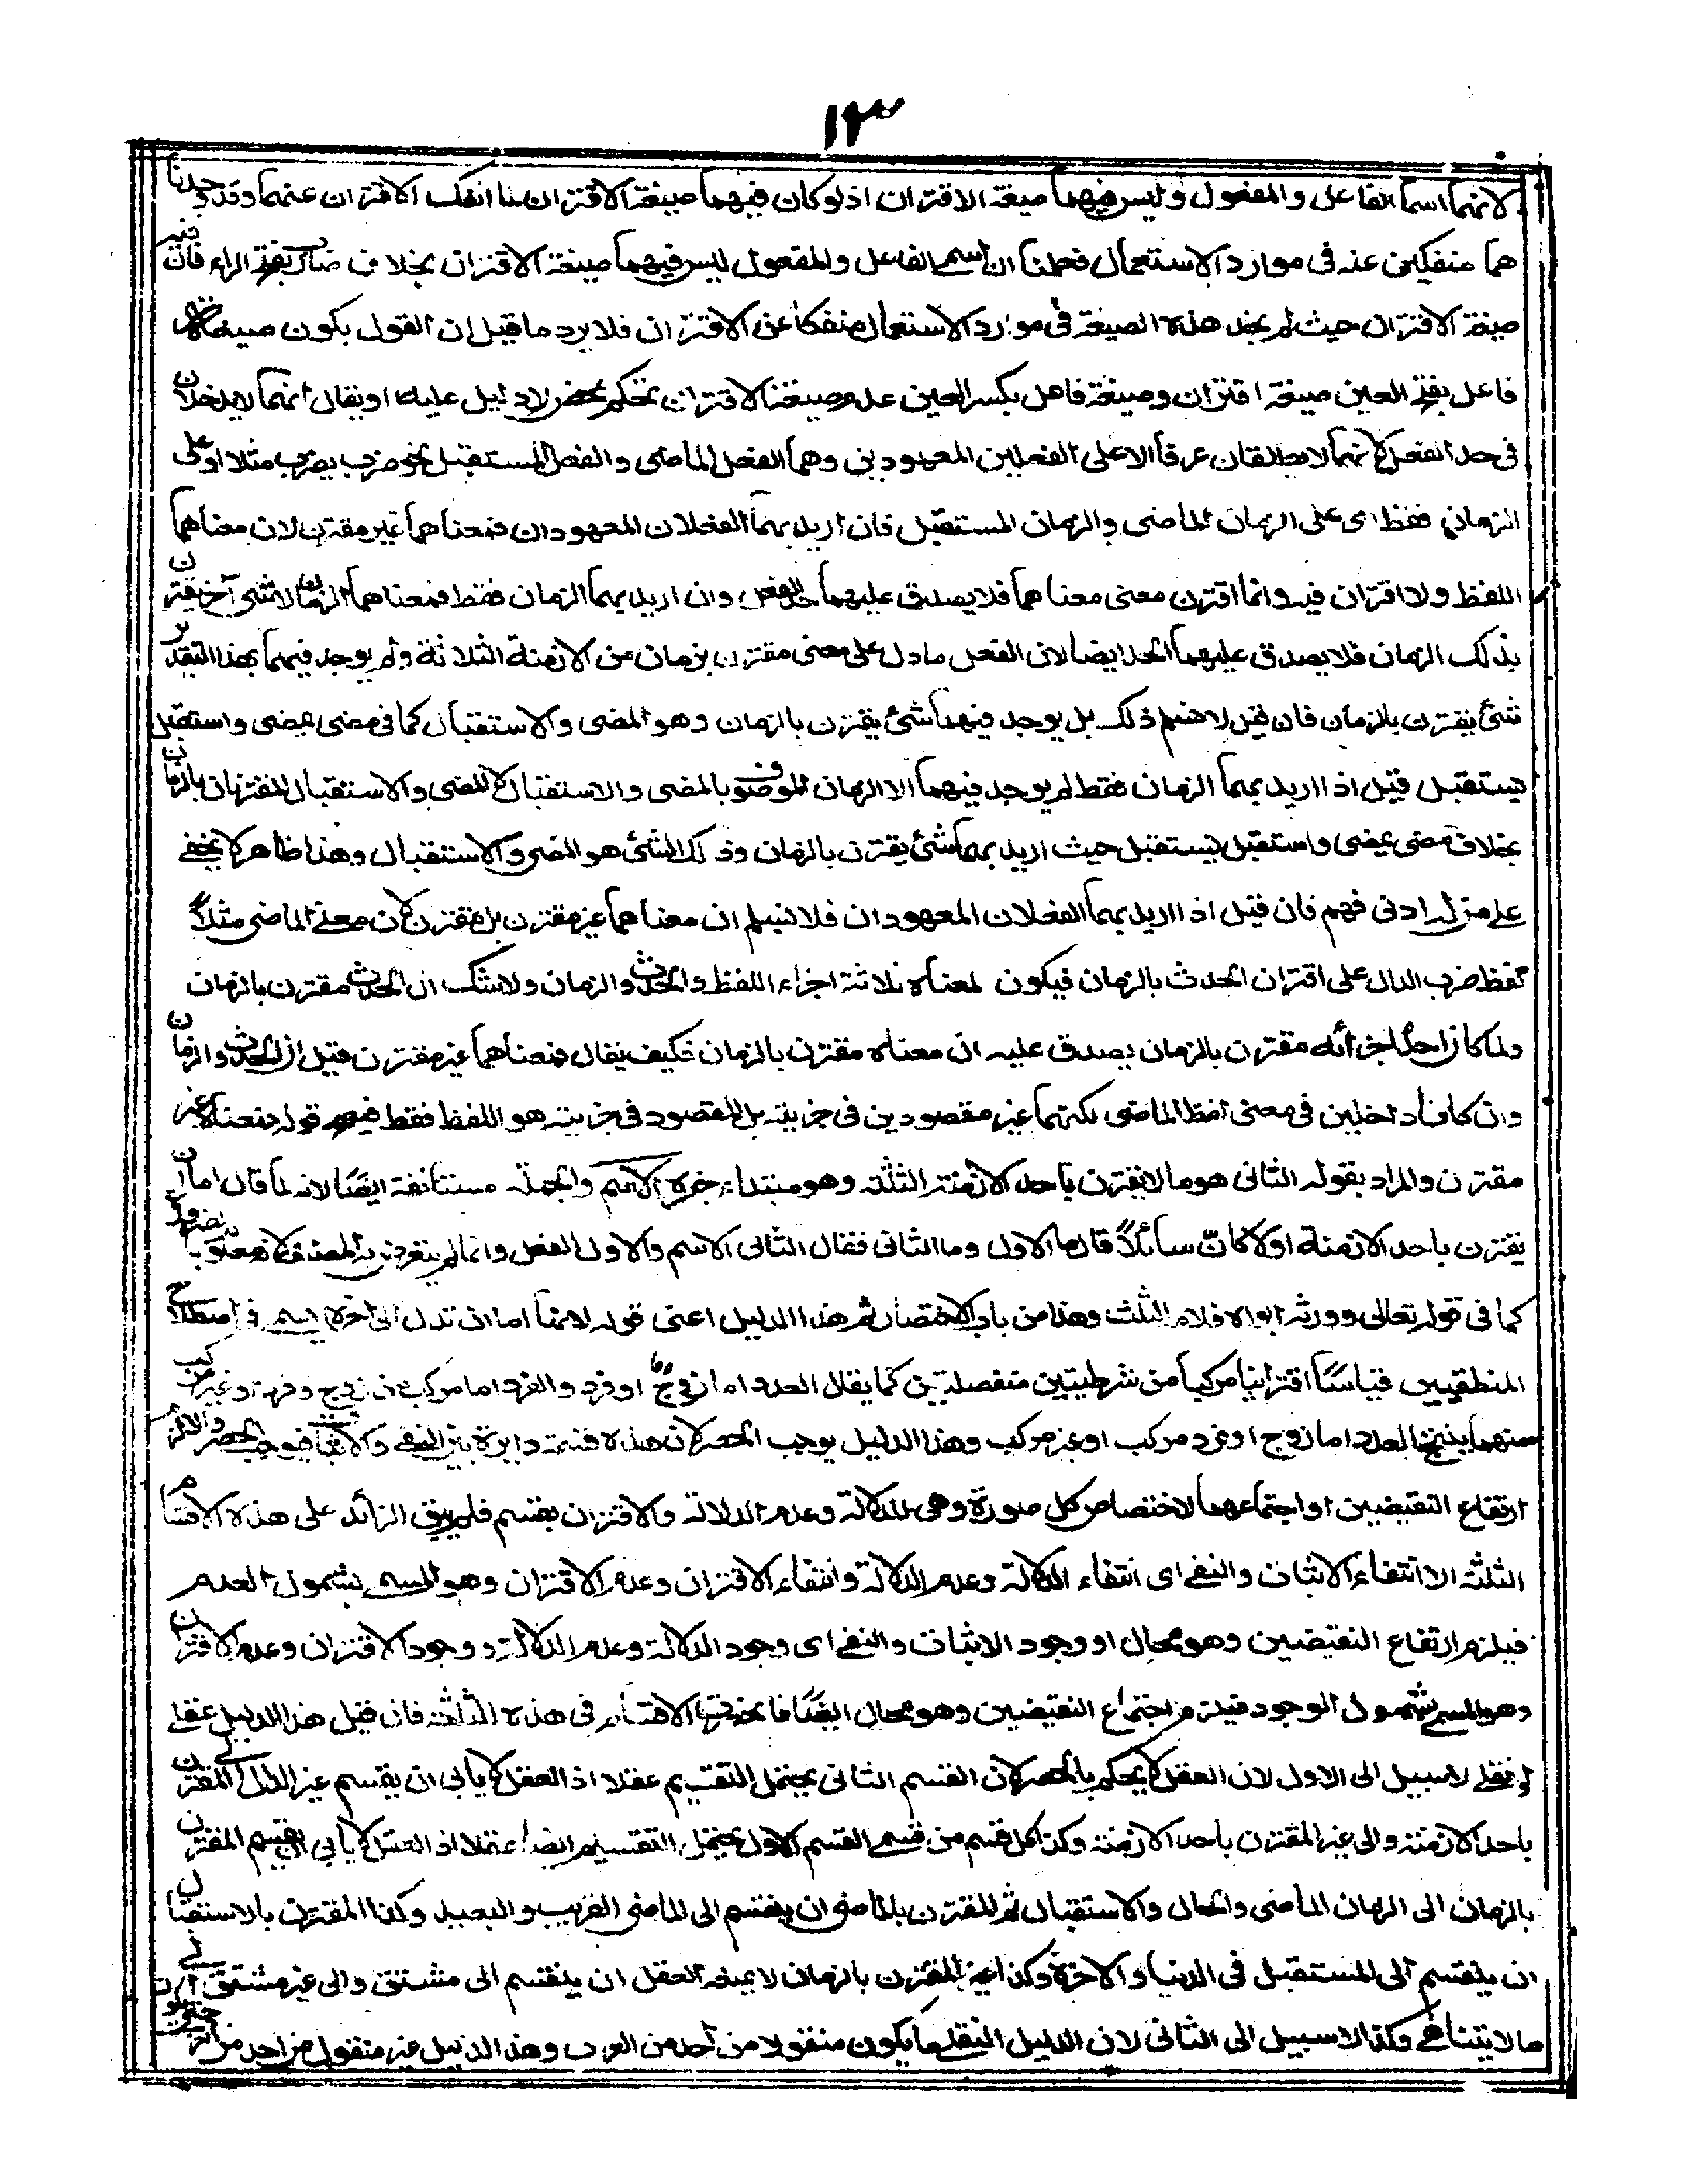 ١٣
لانهما اسما الفاعل والمفعول وليس فيهما صيغة الاقتران اذ لو كان فيهما صيغة الاقتران لما انفك الاقتران عنهما وقد وجدنا
هما منفكين عنه فى موارد الاستعمال فعلمنا ان اسم الفاعل والمفعول ليس فيهما صيغة الاقتران بخلاف ضارب بفتح الراء فان فيه
صيغة الاقتران حيث لم يجد هذه الصيغة فى موارد الاستعمال منفكا عن الاقتران فلا يرد ما قيل ان القول بكون صيغة
فاعل بفتح العين صيغة اقتران وصيغة فاعل بكسر العين عدم صيغة الاقتران تحكم محض لا دليل عليه او يقال انهما لا يدخلان
فى حد الفعل لانهما لا يطلقان عرفا الا على الفعلين المعهودين وهما الفعل الماضى والفعل المستقبل نحو ضرب يضرب مثلا او على
الزمان فقط اى على الزمان الماضى والزمان المستقبل فان اريد بهما الفعلان المعهودان فمعناهما غير مقترن لان معناهما
اللفظ ولا اقتران فيه وانما اقترن معنى معناهما فلا يصدق عليهما حد الفعل وان اريد بهما الزمان فقط فمعناهما الزمان لا شئ آخر يقترن
بذلك الزمان فلا يصدق عليهما الحد ايضا لان الفعل ما دل على معنى مقترن بزمان من الازمنة الثلاثة ولم يوجد فيهما بهذا التقدير
شئ يقترن بالزمان فان قيل لا نسلم ذلك بل يوجد فيهما شئ يقترن بالزمان وهو المضى والاستقبال كما فى مضى يمضى واستقبل
يستقبل قيل اذا اريد بهما الزمان فقط لم يوجد فيهما الا الزمان الموصوف بالمضى والاستقبال لا المضى والاستقبال المقترنان بالزمان
بخلاف مضى يمضى واستقبل يستقبل حيث اريد بهما شئ يقترن بالزمان وذلك الشئ هو المضى والاستقبال وهذا ظاهر لا يخفى
على من له ادنى فهم فان قيل اذا اريد بهما الفعلان المعهودان فلا نسلم ان معناهما غير مقترن بل مقترن لان معنى الماضى مثلاً
لفظ ضرب الدال على اقتران الحدث بالزمان فيكون لمعناه ثلاثة اجزاء اللفظ والحدث والزمان ولا شك ان الحدث مقترن بالزمان
ولما كان احد اجزائه مقترن بالزمان يصدق عليه ان معناه مقترن بالزمان فكيف يقال فمعناهما غير مقترن قيل ان الحدث والزمان
وان كانا داخلين فى معنى لفظ الماضى لكنهما غير مقصودين فى جزيته بل المقصود فى جزيته هو اللفظ فقط فيصح قوله فمعناه غير
مقترن والمراد بقوله الثانى هو ما لا يقترن باحد الازمنة الثلثة وهو مبتداء خبره الاسم والجملة مستانفة ايضا لانه لما قال اما ان
يقترن باحد الازمنة اولا كانّ سائلاً قال ما الاول وما الثانى فقال الثانى الاسم والاول الفعل وانما لم يتعرض
كما فى قوله تعالى وورثه ابواه فلامه الثلث وهذا من باب الاختصار ثم هذا الدليل اعنى قوله لانها اما ان تدل الى اخره يسمى فى اصطلاح
المنطقيين قياسًا اقترانيا مركبا من شرطيتين منفصلتين كما يقال العدد اما زوج او فرد والفرد اما مركب
منهما ينتج العدد اما زوج او فرد مركب او غير مركب وهذا الدليل يوجب الحصر لان هذه قسمة دايرة بين النفى والاثبات فيوجب الحصر والا لزم
ارتفاع النقيضين او اجتماعهما لاختصاص كل صورة وهى الدلالة وعدم الدلالة والاقتران بقسم فلم يبق الزائد على هذه الاقسام
الثلثة الا انتفاء الاثبات والنفى اى انتفاء الدلالة وعدم الدلالة وانتفاء الاقتران وعدم الاقتران وهو المسمى بشمول العدم
فيلزم ارتفاع النقيضين وهو محال او وجود الاثبات والنفى اى وجود الدلالة وعدم الدلالة ووجود الاقتران وعدم الاقتران
وهو المسمى بشمول الوجود فيلزم اجتماع النقيضين وهو محال ايضًا فانحصرت الاقسام فى هذه الثلثة فان قيل هذا الدليل عقلى
او نقلى لا سبيل الى الاول لان العقل لا يحكم بالحصر لان القسم الثانى يحتمل التقسيم عقلا اذ العقل لا يابى ان يقسم غير الدال الى المقترن
باحد الازمنة والى غير المقترن باحد الازمنة وكذا كل قسم من قسمى القسم الاول يحتمل التقسيم ايضا عقلا اذ العقل لا يأبى ان يقسم المقترن
بالزمان الى الزمان الماضى والحال والاستقبال ثم المقترن بالماضى ان ينقسم الى الماضى القريب والبعيد وكذا المقترن بالاستقبال
ان ينقسم الى المستقبل فى الدنيا والاخرة وكذا غير المقترن بالزمان لا يمنع العقل ان ينقسم الى مشتق والى غير مشتق الى
ما لا يتناهى وكذا لا سبيل الى الثانى لان الدليل النقلى ما يكون منقولا من أحد من العرب وهذا الدليل غير منقول من احد من